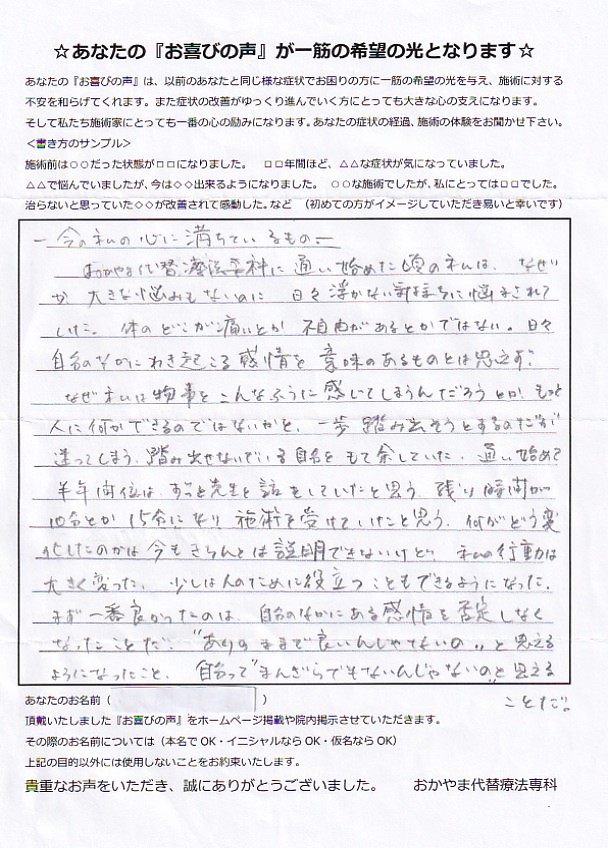 ☆あなたの『お喜びの声』が一筋の希望の光となります☆
あなたの『お喜びの声』は、以前のあなたと同じ様な症状でお困りの方に一筋の希望の光を与え、施術に対する
不安を和らげてくれます。また症状の改善がゆっくり進んでいく方にとっても大きな心の支えになります。
そして私たち施術家にとっても一番の心の励みになります。あなたの症状の経過、施術の体験をお聞かせ下さい。
＜書き方のサンプル＞
施術前は○○だった状態が□□になりました。　□□年間ほど、△△な症状が気になっていました。
△△で悩んでいましたが、今は◇◇出来るようになりました。　○○な施術でしたが、私にとっては□□でした。
治らないと思っていた◇◇が改善されて感動した。など　（初めての方がイメージしていただき易いと幸いです）
－今の私の心に満ちているもの－
おかやま代替療法専科に通い始めた頃の私は、なぜ
か大きな悩みもないのに　日々浮かない気持ちに悩まされて
いた。体のどこが痛いとか不自由があるとかではない。日々
自分のなかにわき起こる感情を意味のあるものとは思えず、
なぜ私は物事をこんなふうに感じてしまうんだろうとか、もっと
人に何かできるのではないかと、一歩踏み出そうとするのだが
迷ってしまう、踏み出せないでいる自分をもて余していた。通い始めて
半年間位は、ずっと先生と話をしていたと思う。残り時間が
10分とか15分になり施術を受けていたと思う。何がどう変
化したのかは今もきちんとは説明できないけど、私の行動は
大きく変った。少しは人のために役立つこともできるようになった。
まず一番良かったのは、自分のなかにある感情を否定しなく
なったことだ。"ありのままで良いんじゃないの"と思える
ようになったこと、自分って"まんざらでもないんじゃないの"と思える
ことだ。
あなたのお名前（　　　　　　）
頂戴いたしました『お喜びの声』をホームページ掲載や院内掲示させていただきます。
その際のお名前については（本名で OK・イニシャルなら OK・仮名なら OK）
上記の目的以外には使用しないことをお約束いたします。
貴重なお声をいただき、誠にありがとうございました。　　おかやま代替療法専科